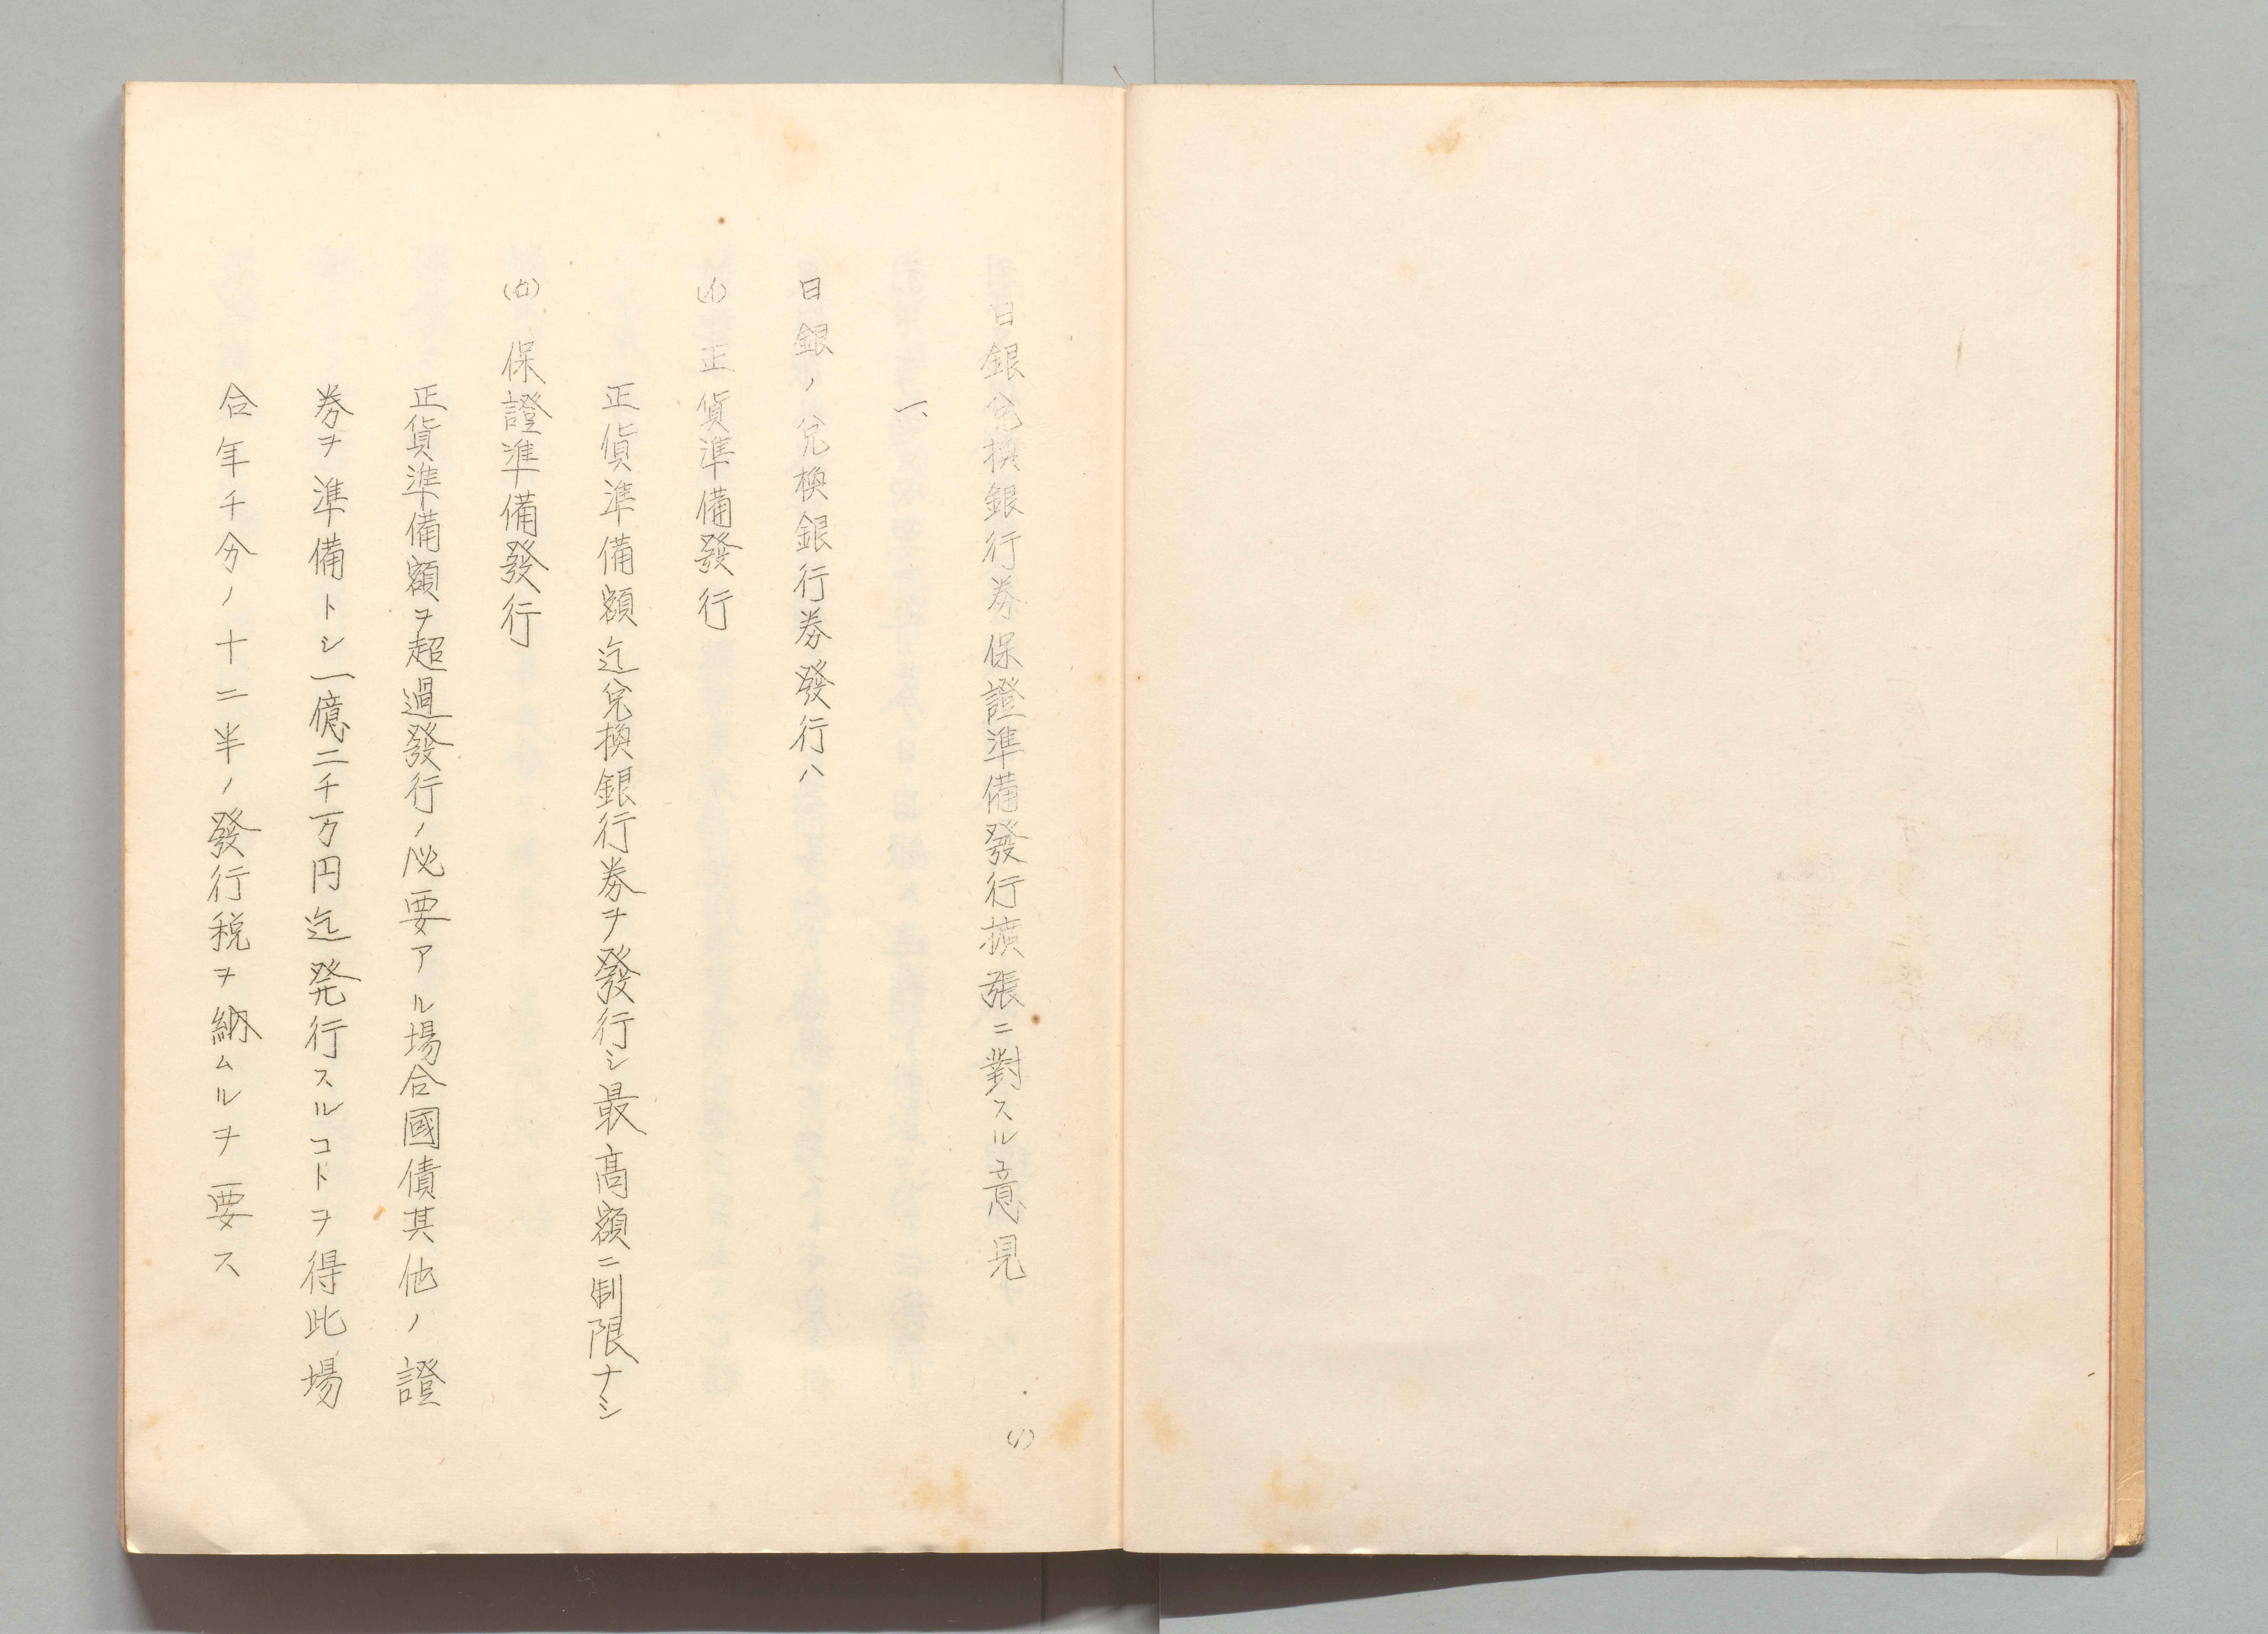 日銀兌換銀行券保證準備發行擴張ニ對スル意見
一、
日銀ノ兌換銀行券發行ハ
(イ) 正貨準備發行
正貨準備額迄兌換銀行券ヲ發行シ最高額ニ制限ナシ
(ロ) 保證準備發行
正貨準備額ヲ超過發行ノ必要アル場合國債其他ノ證
券ヲ準備トシ一億二千万円迄発行スルコトヲ得此場
合年千分ノ十二半ノ發行税ヲ納ムルヲ要ス